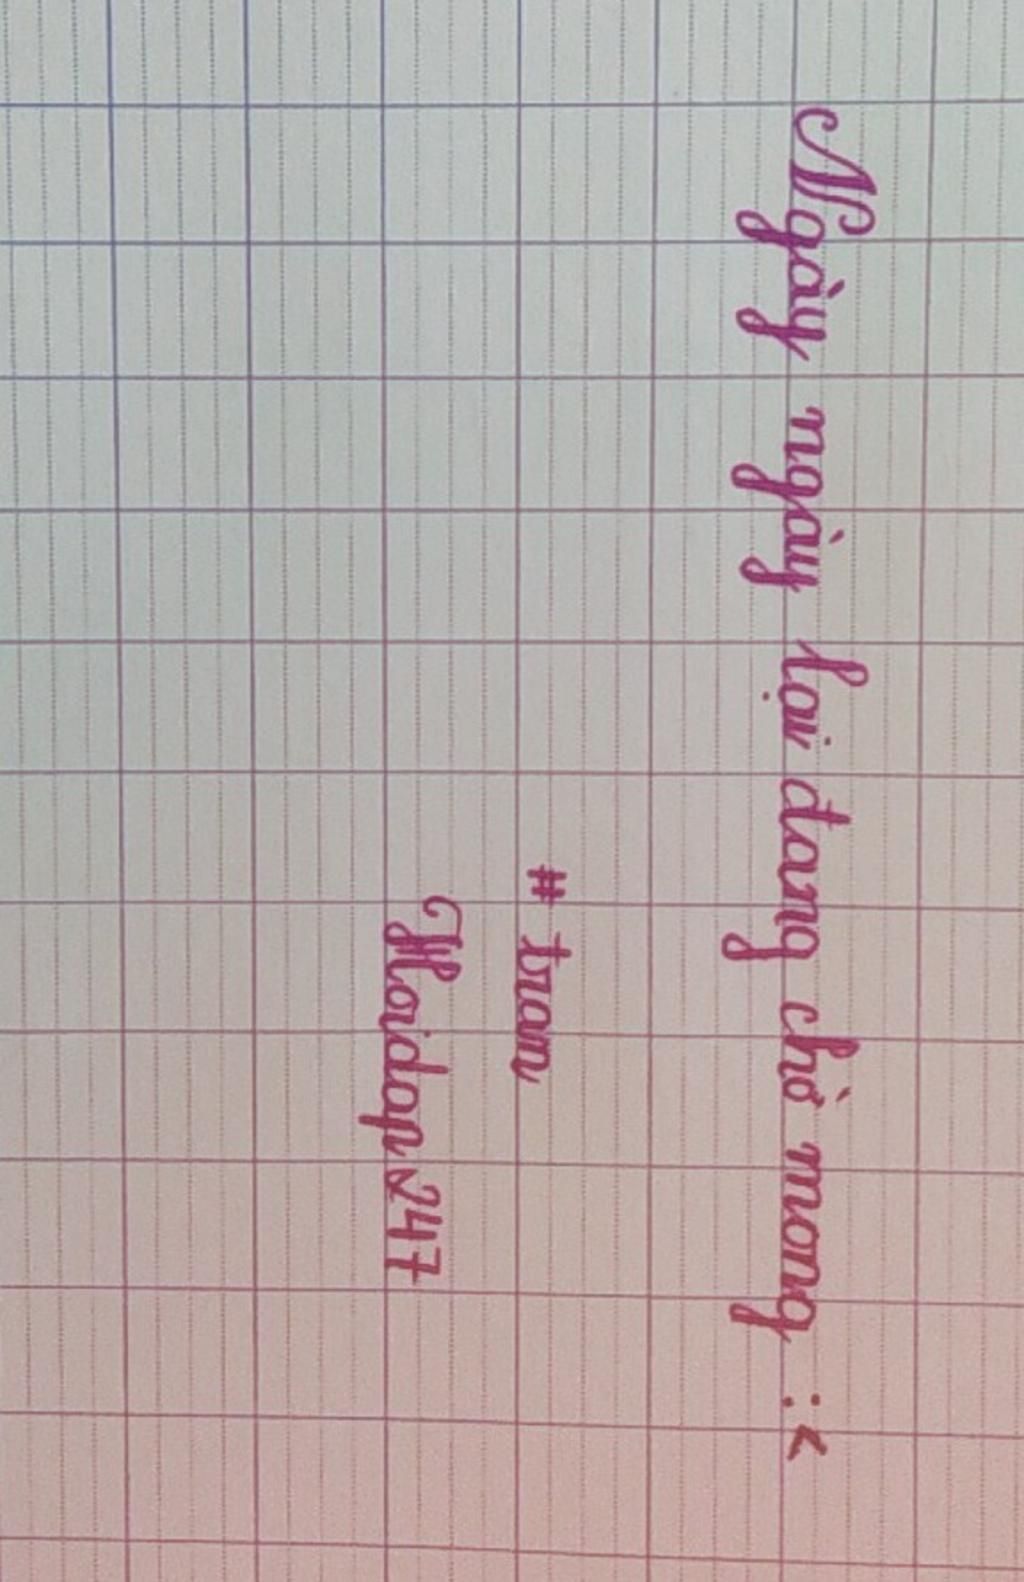 Ngày ngày lại đang chờ mong :<
# tran
Hoidap247